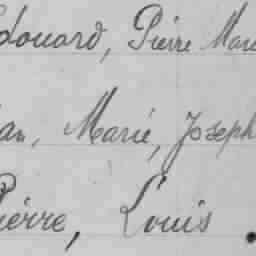 Edouard, Pierre Marie
an, Marie, Joseph
Pierre, Louis.